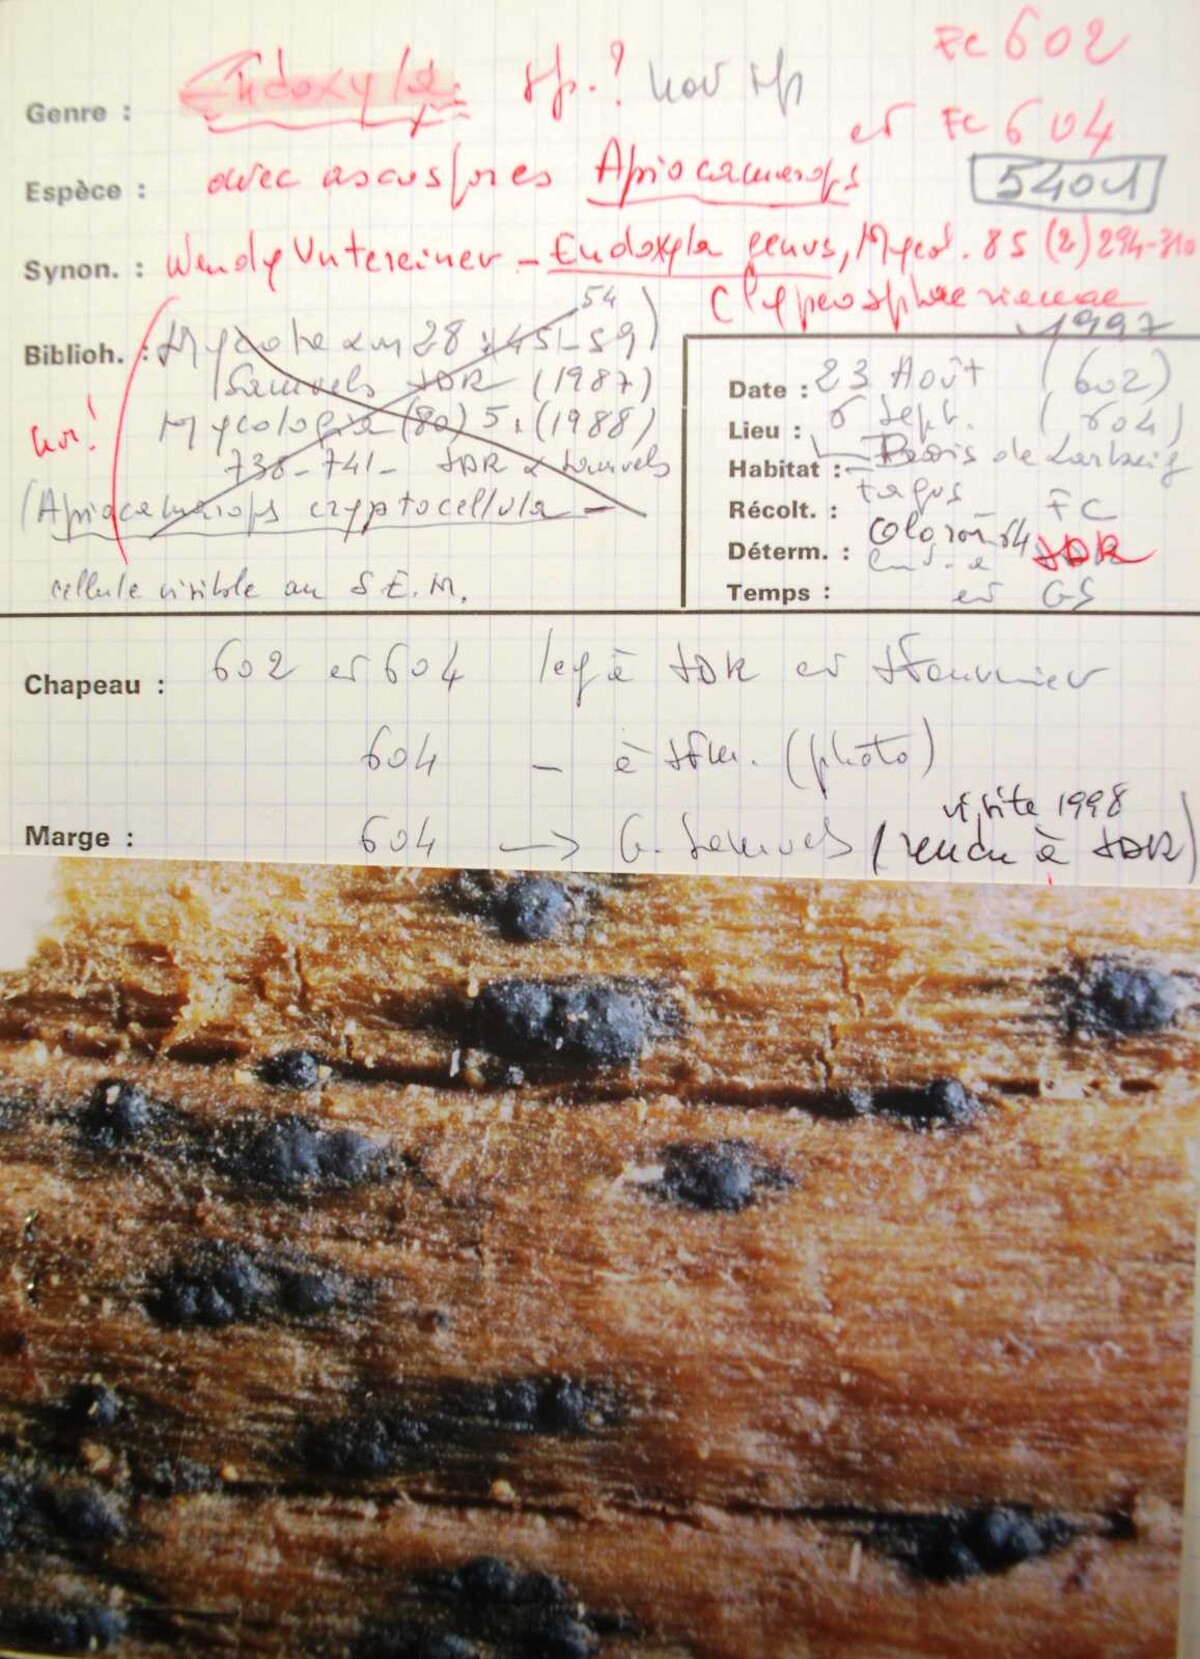 FC 602
Genre : Endoxyla sp. ? nov sp
et FC 604
Espèce : avec ascospores Apiocamarops
5401
Synon. : Wendy Untereiner - Endoxyla genus, Mycol. 85 (2) 294-310
Clypeosphaeriaceae
54
1997
Biblioh. : Mycotaxon 28 : 451-59)
Samuels JDR (1987)
Mycologia (80) 5, (1988)
738-741- JDR & Samuels
(Apiocamarops cryptocellula -
cellule visible au S.E.M.
Date : 23 Août (602)
Lieu : 6 Sept. (604)
Habitat : Bois de
Fagus
Récolt. : FC
Oloron 64
Déterm. : JDR
Temps : et GS
Chapeau : 602 et 604 leg à JDR et JFournier
604 - à JFM. (photo)
visite 1998
Marge : 604 → G. Samuels (rendu à JDR)